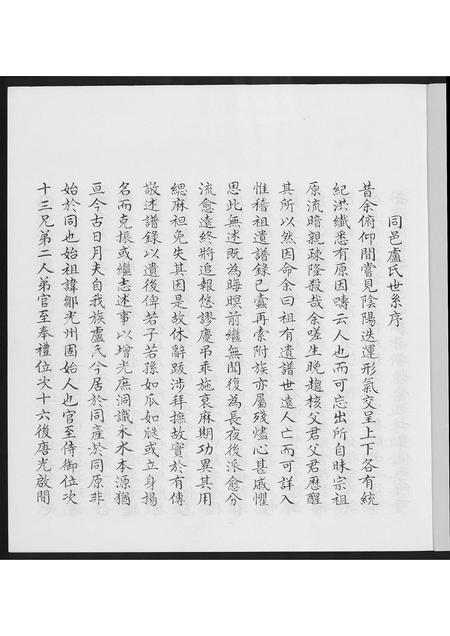 同邑盧氏世系序
昔余俯仰間嘗見陰陽迭運形氣交呈上下各有統
紀洪纖悉有原因疇云人也而可忘出所自昧宗祖
原流暗親疎隆殺哉余嗟生晚趨核父君父君歷醒
其所以然因命余曰祖有遺譜世遠人亡而可詳入
惟稽祖遺譜錄已蠹再索附族亦屬殘燼心甚戚懼
思此無述既為晦暝前繼無聞復為長夜後派愈分
流愈遠終將追報悠謬慶吊乖施衰麻期功異其用
緦麻袒免失其因是故休辭跋涉拜撫故實於有傳
敬述譜錄以遺後俾若子若孫如瓜如瓞或立身揚
名而克振或繼志述事以增光庶洞識木水本源猶
亘今古日月夫自我族盧氏今居於同產於同原非
始於同也始祖諱鄒光州固始人也官至侍御位次
十三兄弟二人弟官至奉禮位次十六後唐光啟間